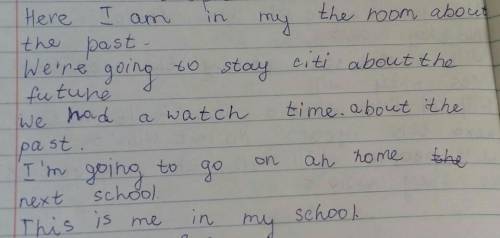 Here I am in my the room about
the past.
We're going to stay citi about the
future
we had a watch time. about the
past.
I'm going to go on an home the
next school.
This is me in my school.